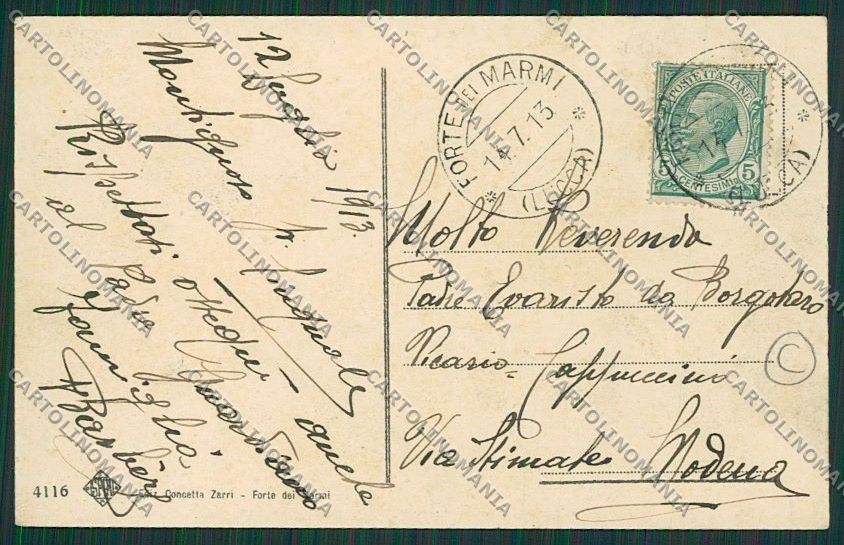 12 Luglio 1913.
Montignoso
Rispettosi ossequi anche
al Padre Guardiano
Famiglia
Barbieri
4116
Ediz. Concetta Zarri - Forte dei Marmi
FORTE DEI MARMI
14.7.13
(LUCCA)
POSTE ITALIANE
5 CENTESIMI 5
Molto Reverendo
Padre Evaristo da Borgotaro
Vicario Cappuccini
Via Stimate Modena
C
CARTOLINOMANIA